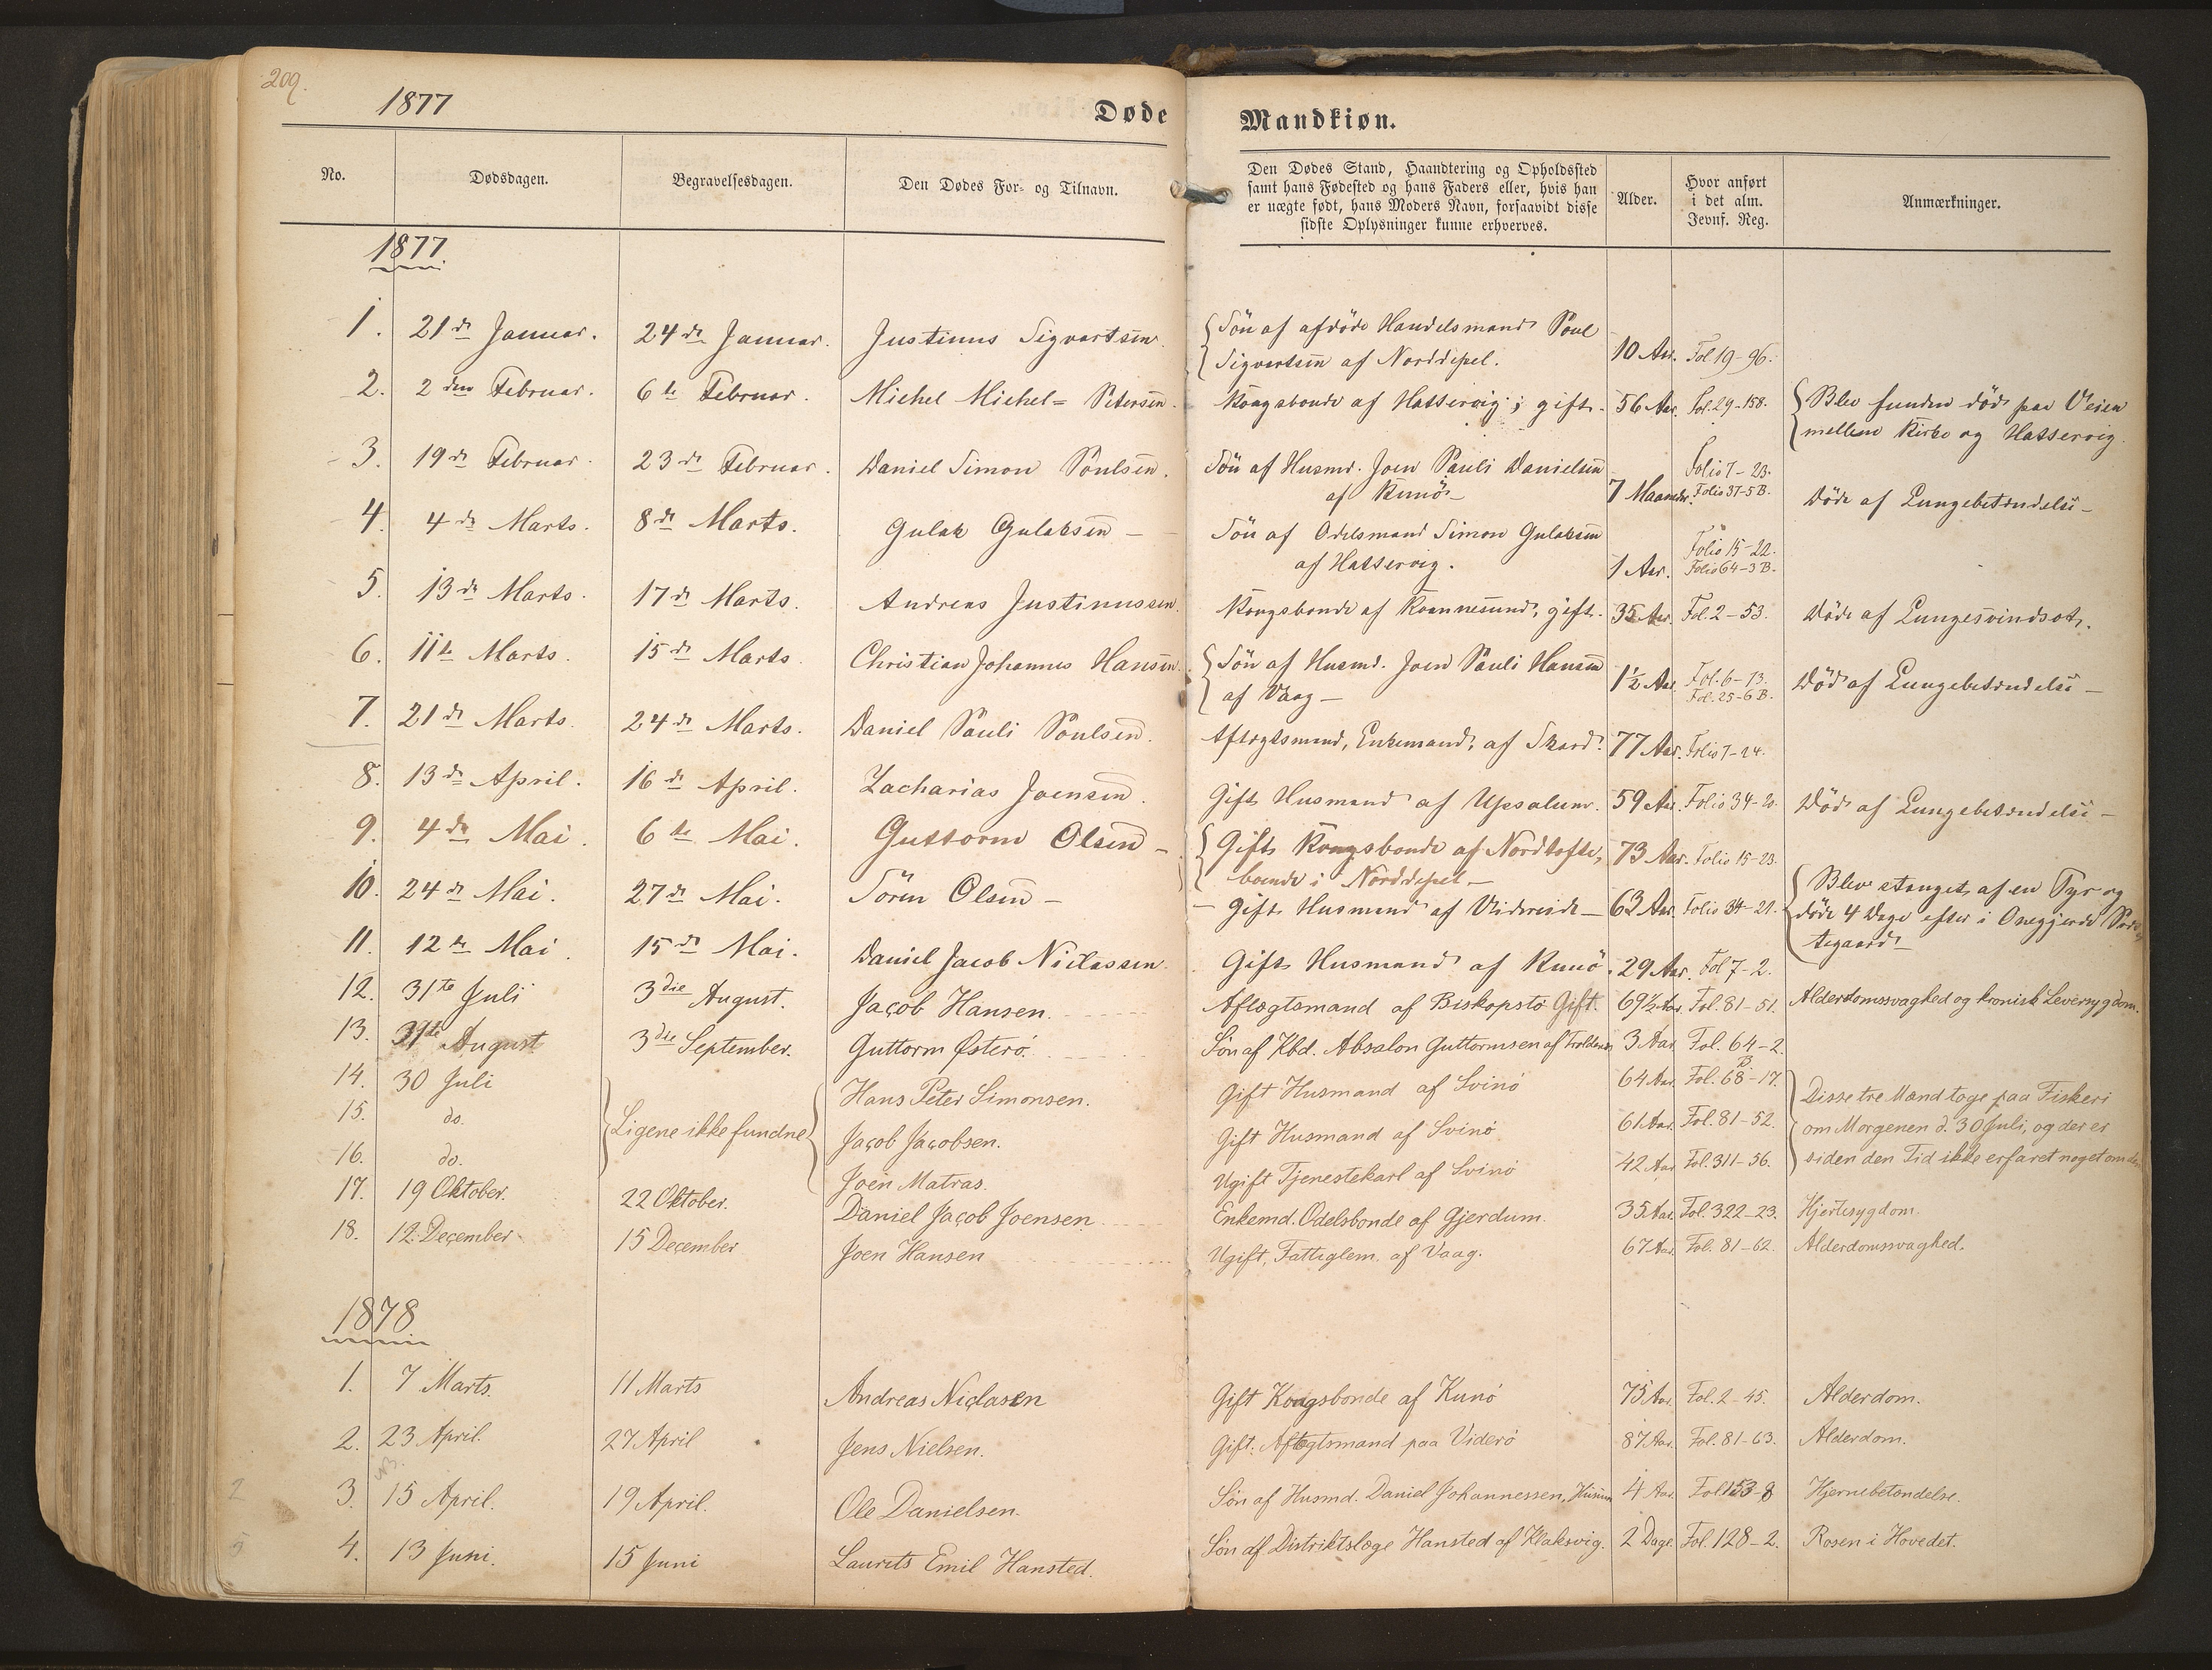 209.
1877
Døde
Mandkiøn.
No.
Dødsdagen.
Begravelsesdagen.
Den Dødes For- og Tilnavn.
Den Dødes Stand, Haandtering og Opholdssted
samt hans Fødested og hans Faders eller, hvis han
er uægte født, hans Moders Navn, forsaavidt disse
sidste Oplysninger kunne erhverves.
Alder.
Hvor anført
i det alm.
Jevnf. Reg.
Anmærkninger.
1877.
1. 21de Januar. 24de Januar. Justinus Sigvartsen. Søn af afdøde Handelsmand Poul
Sigvartsen af Norddepel. 10 Aar. Fol 19-96.
2. 2den Februar. 6te Februar. Michel Michel= Petersen. Kongsbonde af Hattervig; gift. 56 Aar. Fol. 29-158. Blev funden død paa Veien
mellem Kirke og Hattervig.
3. 19de Februar. 23de Februar. Daniel Simon Poulsen. Søn af Husmd. Joen Pauli Danielsen
af Kunö- 7 Maander. Folio 7-23.
Folio 37-5 B. Døde af Lungebetændelse-
4. 4de Marts. 8de Marts. Gulak Gulaksen - Søn af Odelsmand Simon Gulaksen
af Hattervig. 1 Aar. Folio 15-22.
Folio 64-3 B.
5. 13de Marts. 17de Marts. Andreas Justinussen. Kongsbonde af Kvannesund; gift. 35 Aar. Fol. 2-53. Døde af Lungesvindsot.
6. 11te Marts. 15de Marts. Christian Johannes Hansen. Søn af Husmd. Joen Pauli Hansen
af Vaag- 1½ Aar. Fol. 6-13.
Fol. 25-6 B. Død af Lungebetændelse-
7. 21de Marts. 24de Marts. Daniel Pauli Poulsen. Aftægtsmand, Enkemand, af Skard. 77 Aar. Folio 7-24.
8. 13de April. 16de April. Zacharias Joensen. Gift Husmand af Upsalum. 59 Aar. Folio 34-20. Død af Lungebetændelse-
9. 4de Mai. 6te Mai. Guttorm Olsen - Gift Kongsbonde af Nordtofte,
boende i Norddepel- 73 Aar. Folio 15-23.
10. 24de Mai. 27de Mai. Sören Olsen - - Gift Husmand af Videreide- 63 Aar. Folio 34-21. Blev stanget af en Tyr og
døde 4 Dage efter i
11. 12te Mai. 15de Mai. Daniel Jacob Niclassen. Gift Husmand af Kunö. 29 Aar. Fol 7-2.
12. 31te Juli 3die August. Jacob Hansen. Aftægtsmand af Biskopstö Gift. 69½ Aar. Fol. 81-51. Alderdomssvaghed og kronisk Leversygdom.
13. 31te August 3die September. Guttorm Østerø. Søn af Kbd. Absalon Guttormsen af Troldenæs 3 Aar. Fol. 64-2.
B.
14. 30 Juli Ligene ikke fundne Hans Peter Simonsen. Gift Husmand af Svinö 64 Aar. Fol. 68-17. Disse tre Mænd toge paa Fiskeri
15. do. Jacob Jacobsen. Gift Husmand af Svinö. 61 Aar. Fol. 81-52. om Morgenen d. 30 Juli, og der er
16. do. Joen Matras. Ugift Tjenestekarl af Svinö 42 Aar. Fol. 311-56. siden den Tid ikke erfaret noget om dem
17. 19 Oktober. 22 Oktober. Daniel Jacob Joensen Enkemd. Odelsbonde af Gjerdum. 35 Aar. Fol. 322-23. Hjertesygdom.
18. 12 December 15 December Joen Hansen Ugift, Fattiglem. af Vaag. 67 Aar. Fol. 81-62. Alderdomssvaghed.
1878
1. 7 Marts. 11 Marts Andreas Niclasen Gift Kongsbonde af Kunö 75 Aar. Fol. 2-45. Alderdom.
2. 23 April. 27 April Jens Nielsen. Gift. Aftægtsmand paa Viderö 87 Aar. Fol. 81-63. Alderdom.
NB.
2 3. 15 April. 19 April. Ole Danielsen. Søn af Husmd. Daniel Johannessen, Husum 4 Aar. Fol 153-8 Hjernebetændelse.
5 4. 13 Juni. 15 Juni Laurits Emil Hansted. Søn af Distriktslæge Hansted af Klaksvig. 2 Dage. Fol. 128-2. Rosen i Hovedet.